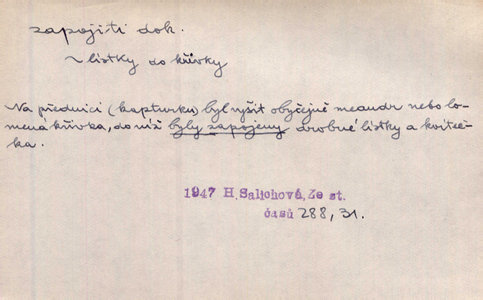 zapojiti dok.
~ lístky do křivky
Na přednici (kapturku) byl vyšit obyčejně meandr nebo lo-
mená křivka, do níž byly zapojeny drobné lístky a kvíteč-
ka.
1947 H. Salichová, Ze st.
časů 288, 31.